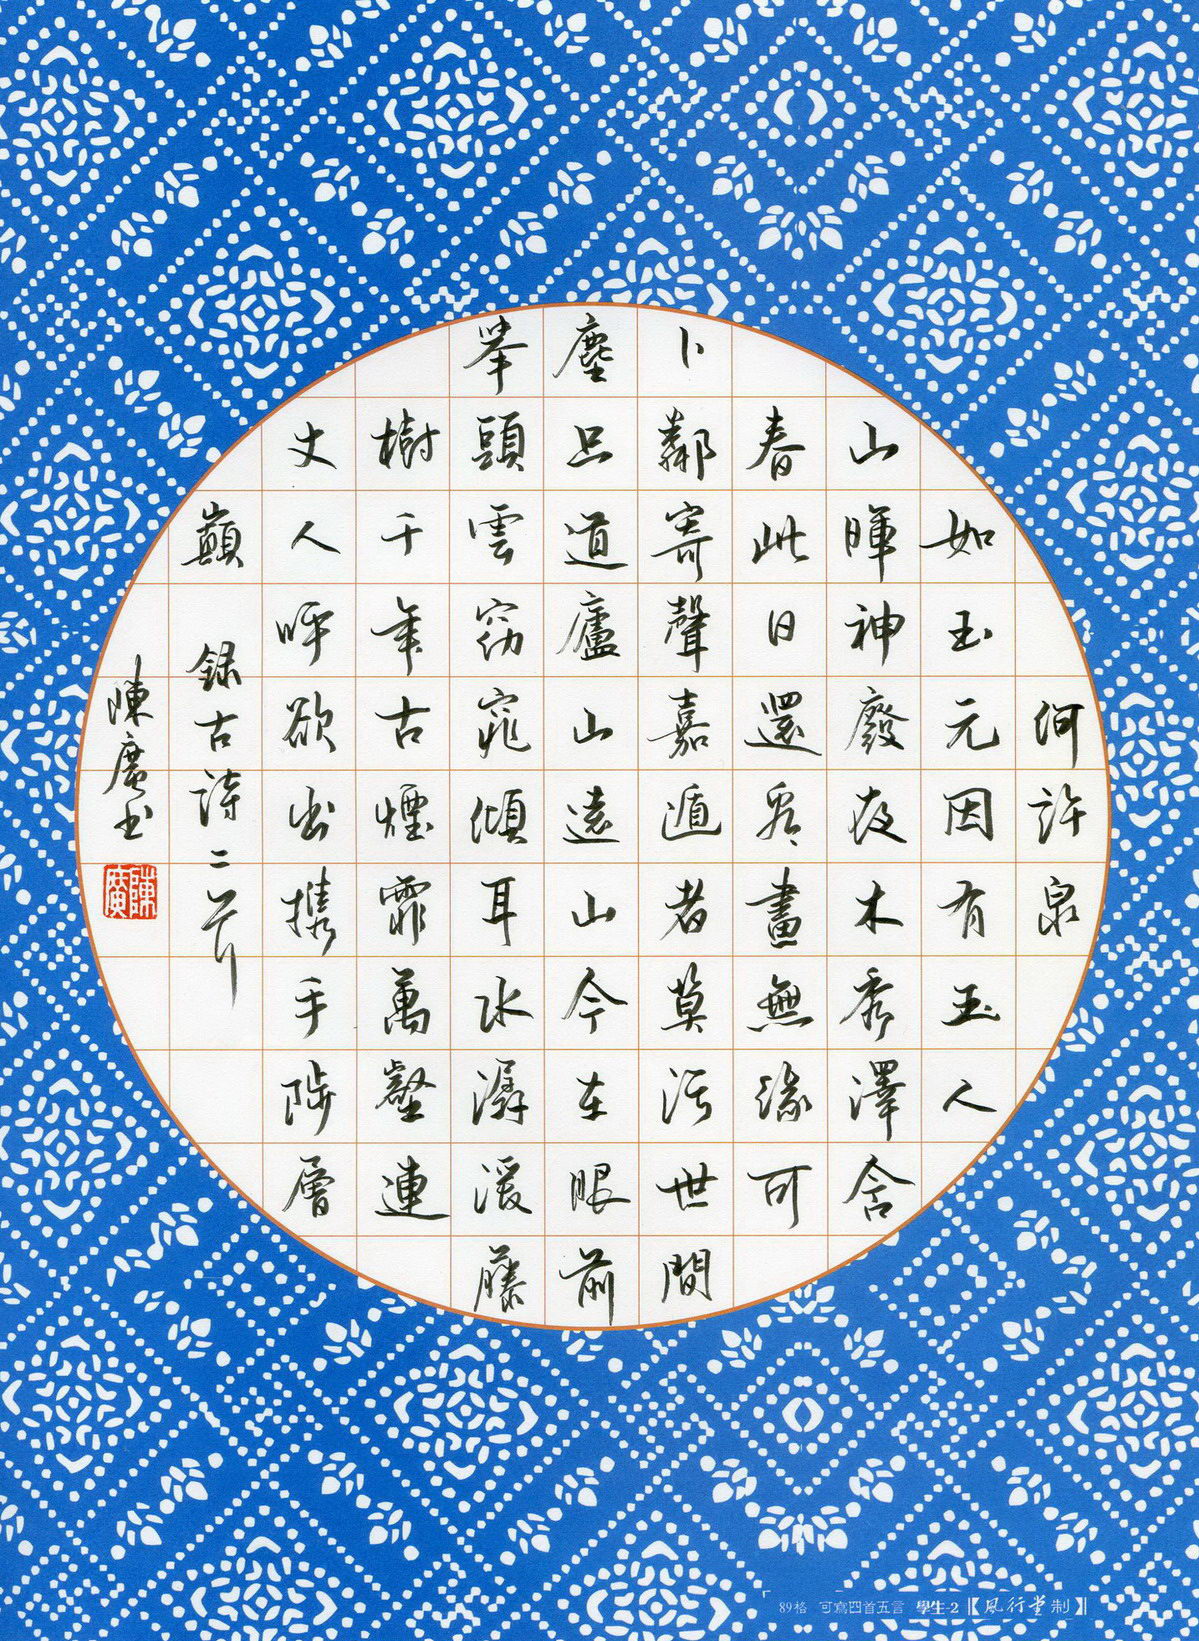 何許泉
如玉元因有玉人
山暉神廢夜木秀澤含
春此日還看畫無緣可
卜鄰寄聲嘉遁者莫污世間
塵只道廬山遠山今在眼前
舉頭雲窈窕傾耳水潺湲藤
樹千年古煙霏萬壑連
丈人呼欲出攜手陟層
巔 録古詩二首
陳廣書
陳廣
89格 可寫四首五言 學生-2【風行堂制】